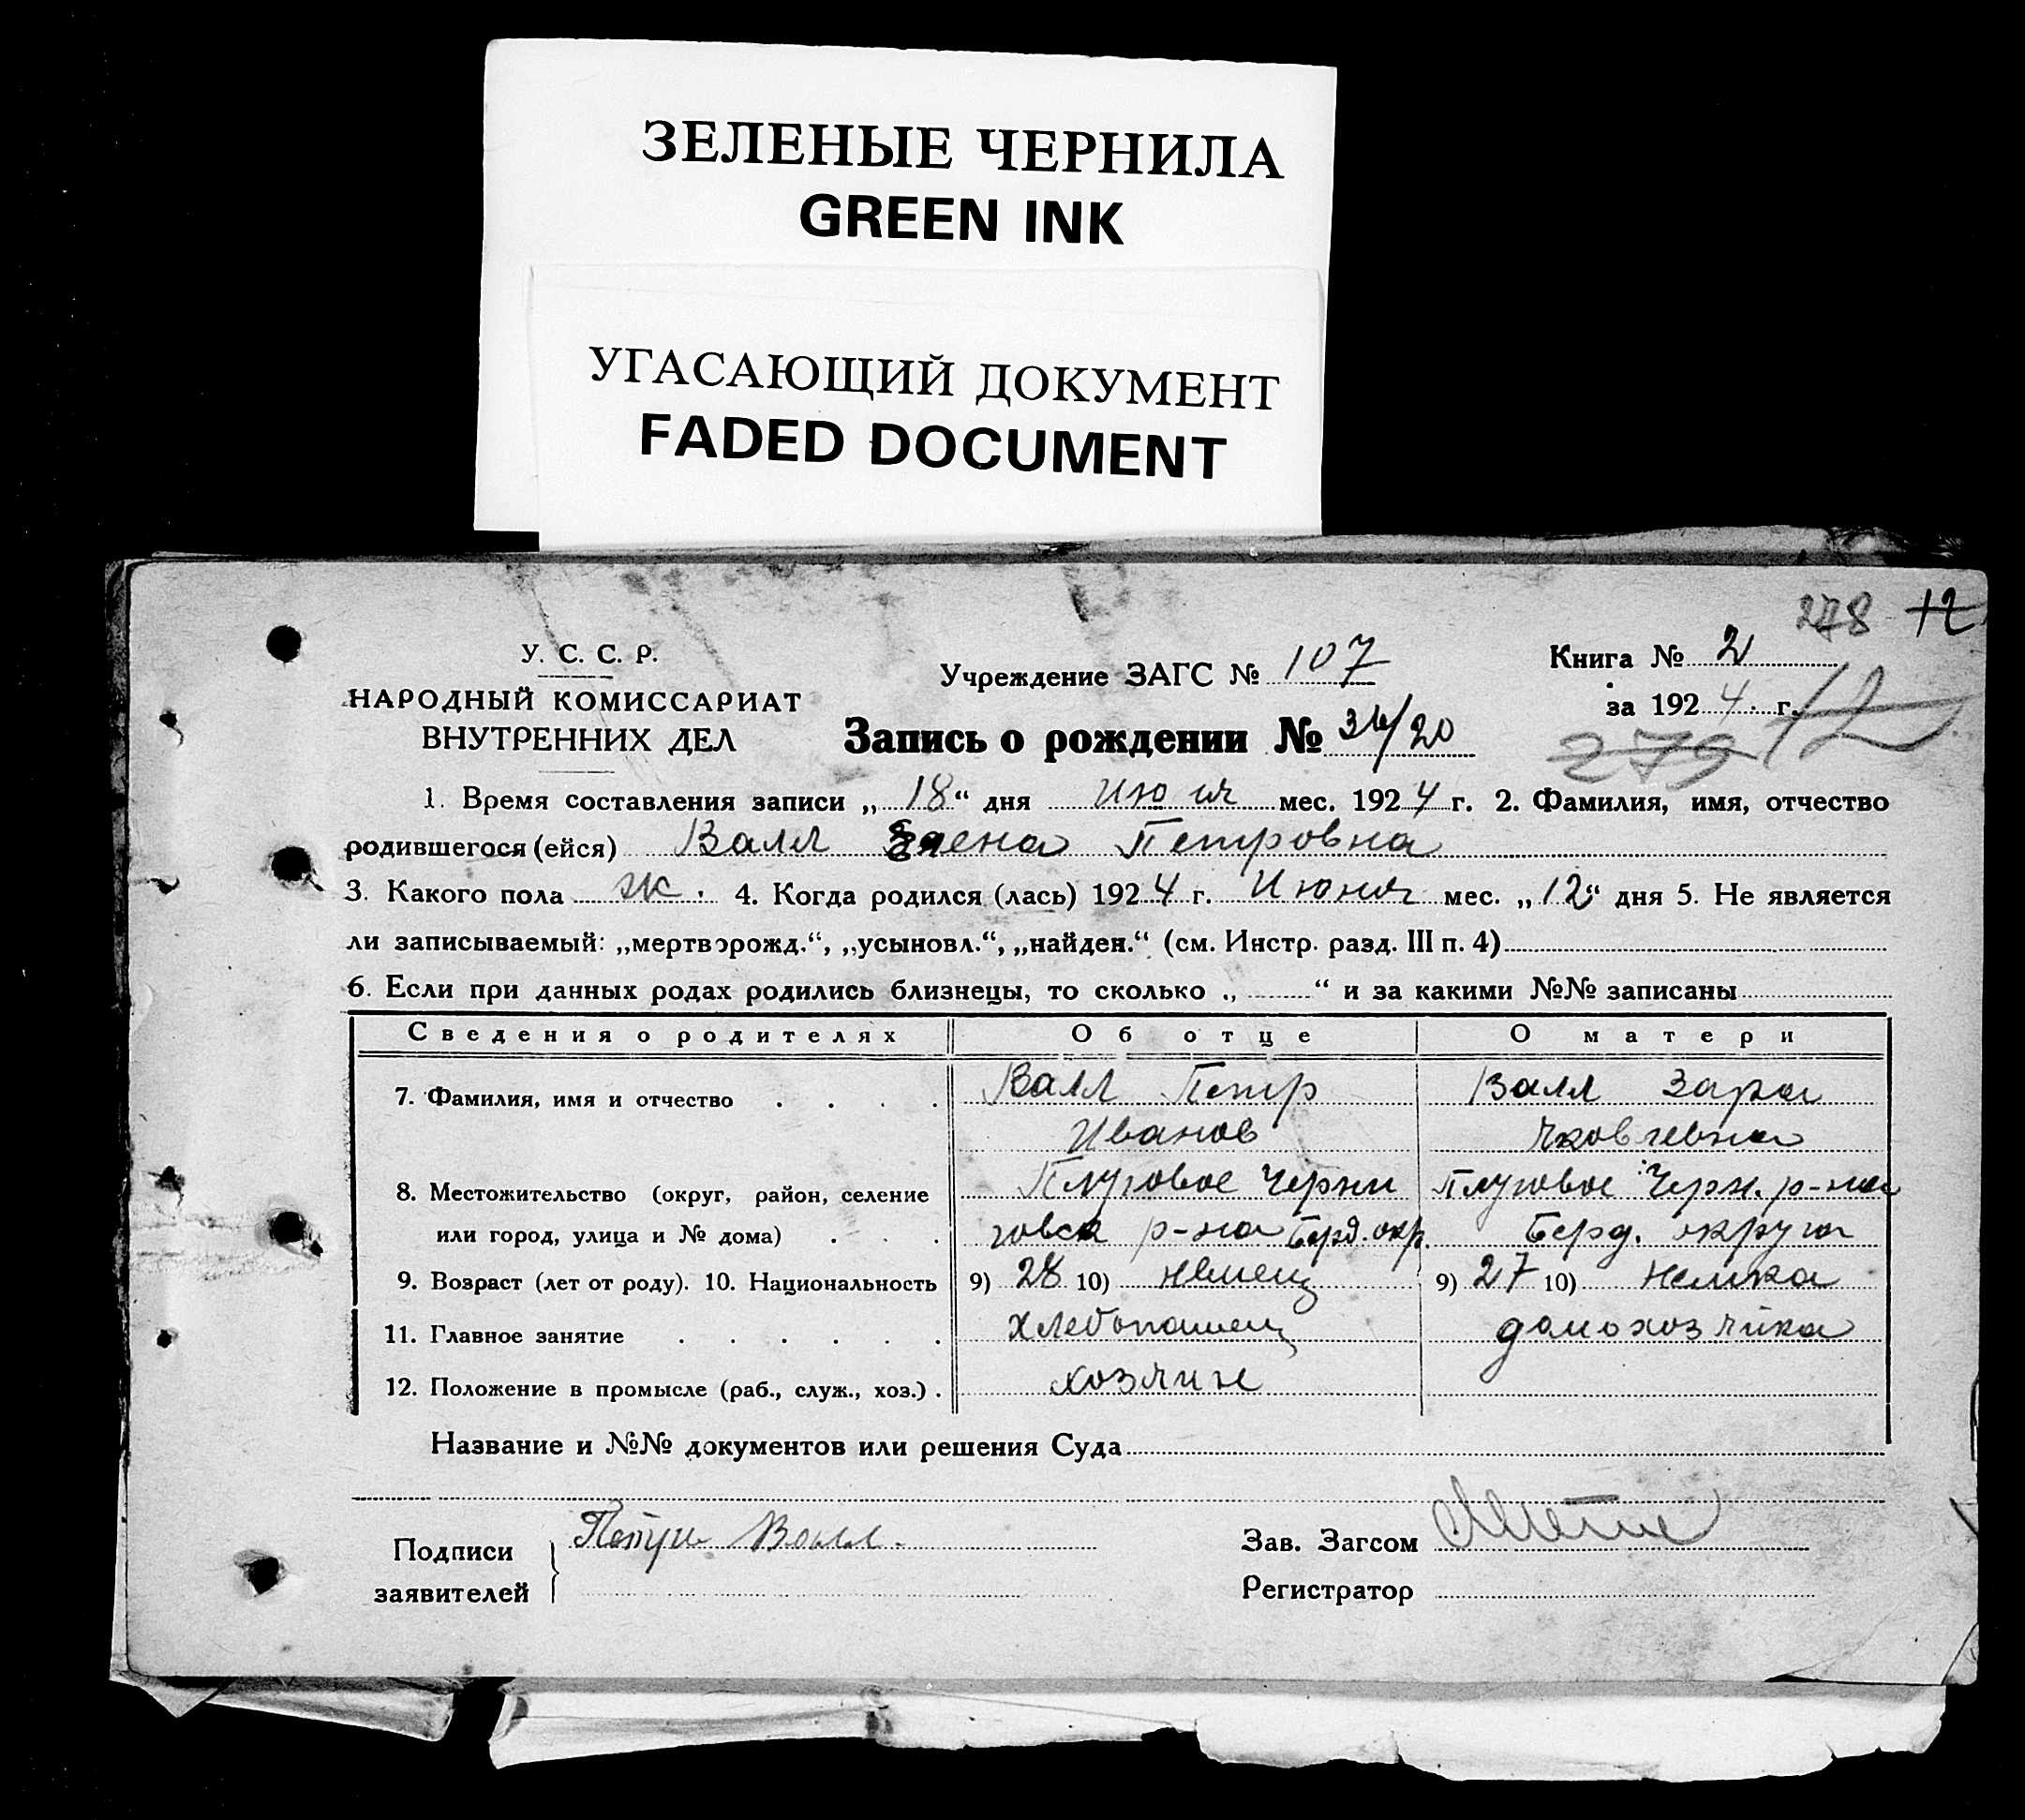 ЗЕЛЕНЫЕ ЧЕРНИЛА
GREEN INK
УГАСАЮЩИЙ ДОКУМЕНТ
FADED DOCUMENT
278 12
У. С. С. Р.
НАРОДНЫЙ КОМИССАРИАТ
ВНУТРЕННИХ ДЕЛ
Учреждение ЗАГС № 107
Книга № 2
за 1924. г. 12
279
Запись о рождении № 36/20
1. Время составления записи „18“ дня Июня мес. 1924 г. 2. Фамилия, имя, отчество
родившегося (ейся) Валл Елена Петровна
3. Какого пола ж. 4. Когда родился (лась) 1924 г. Июня мес. „12“ дня 5. Не является
ли записываемый: „мертворожд.“, „усыновл.“, „найден.“ (см. Инстр. разд. III п. 4)
6. Если при данных родах родились близнецы, то сколько „ “ и за какими №№ записаны
Сведения о родителях Об отце О матери
7. Фамилия, имя и отчество . . . . Валл Петр Валл Зара
Иванов Яковлевна
8. Местожительство (округ, район, селение Плуговое Черни Плуговое Черн. р-на
или город, улица и № дома) . . . говск р-на Берд. окр. Берд. округа
9. Возраст (лет от роду). 10. Национальность 9) 28 10) немец 9) 27 10) немка
11. Главное занятие . . . . . . хлебопашец домохозяйка
12. Положение в промысле (раб., служ., хоз.) . хозяин
Название и №№ документов или решения Суда
Подписи Валл. Зав. Загсом
заявителей Регистратор